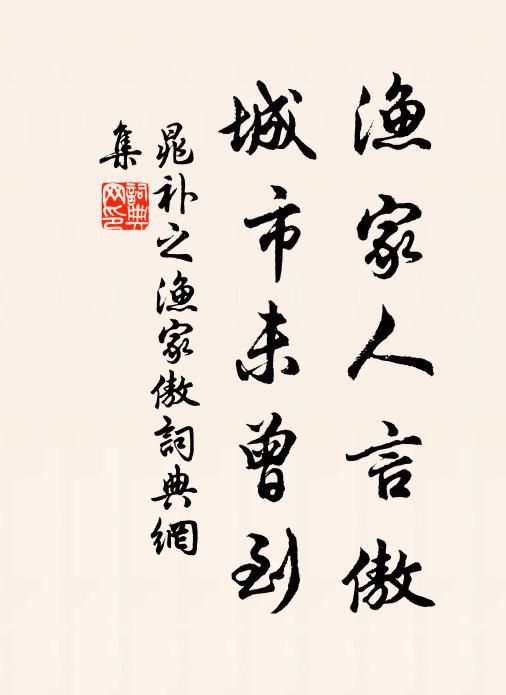 渔家人言傲
城市未曾到
晁补之渔家傲詞典網
集
詞典网印